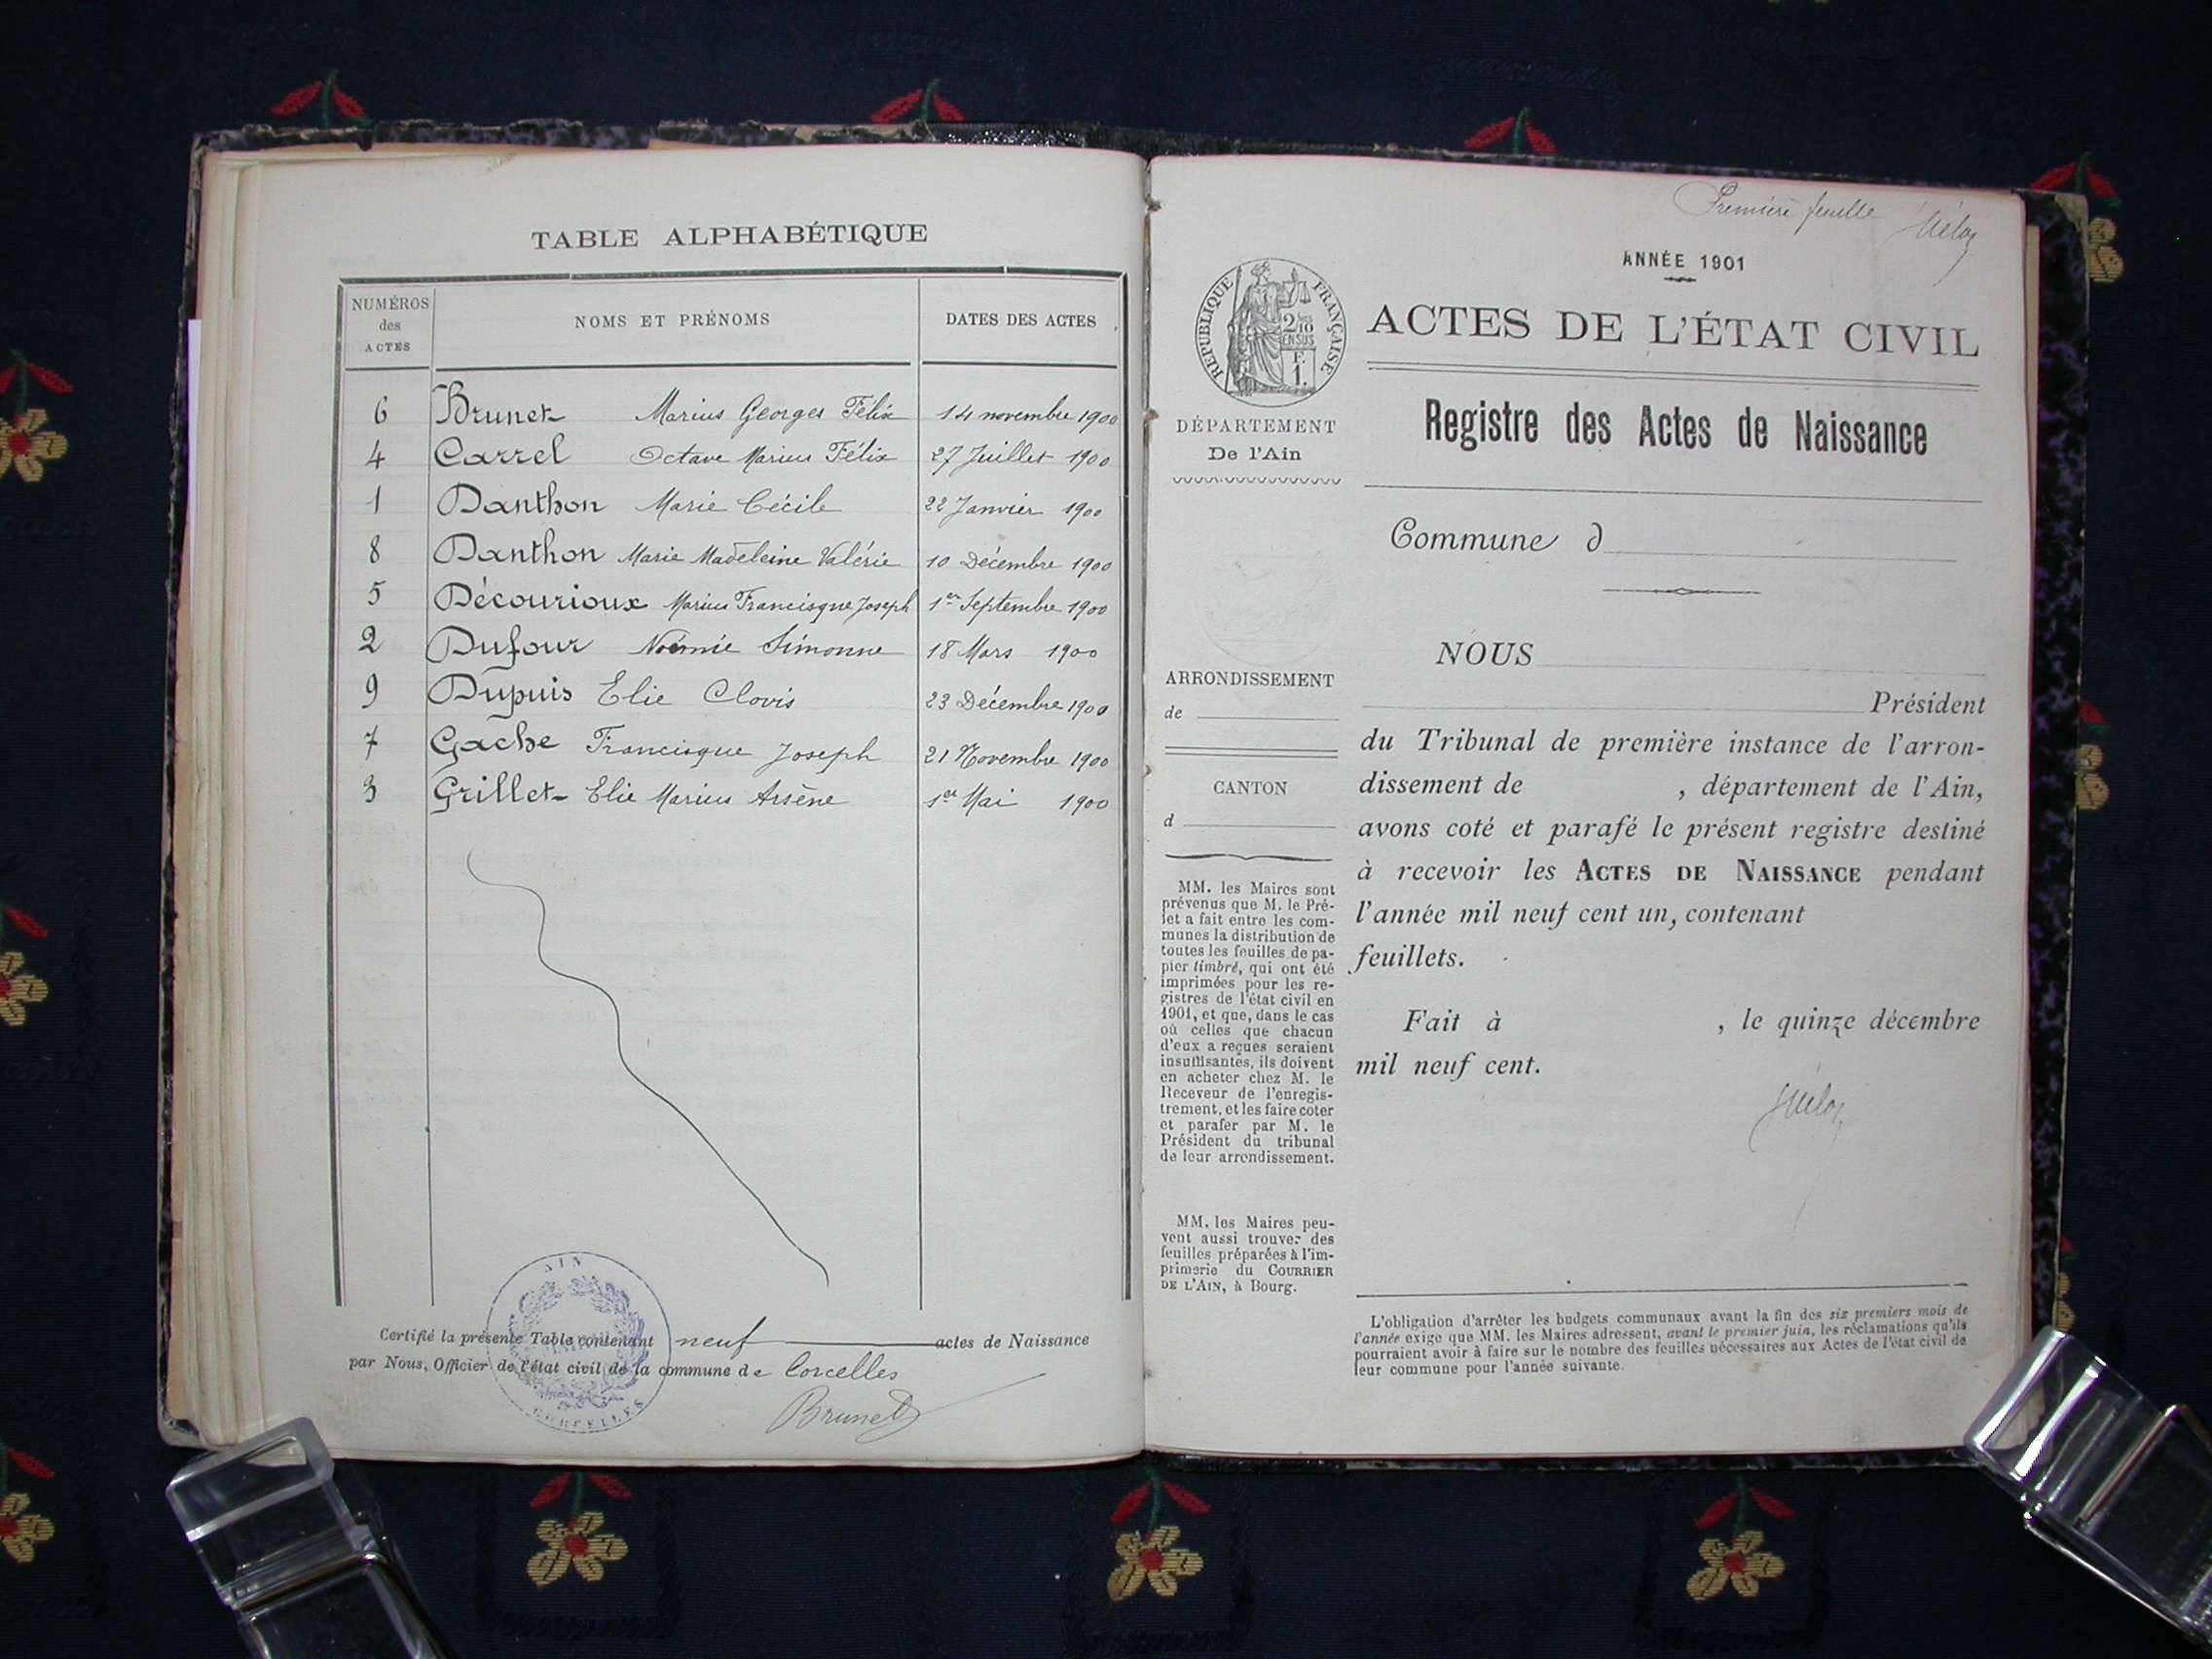 TABLE ALPHABÉTIQUE
NUMÉROS
des
ACTES
NOMS ET PRÉNOMS
DATES DES ACTES
6 Brunet Marius Georges Félix 14 novembre 1900
4 Carrel Octave Marius Félix 27 Juillet 1900
1 Danthon Marie Cécile 22 Janvier 1900
8 Danthon Marie Madeleine Valérie 10 Décembre 1900
5 Décourioux Marius Francisque Joseph 1er Septembre 1900
2 Dufour Noémie Simonne 18 Mars 1900
9 Dupuis Elie Clovis 23 Décembre 1900
7 Gache Francisque Joseph 21 Novembre 1900
3 Grillet Elie Marius Arsène 1er Mai 1900
AIN
CORCELLES
Certifié la présente Table contenant neuf actes de Naissance
par Nous, Officier de l'état civil de la commune de Corcelles
Brunet
Première feuille
ANNÉE 1901
RÉPUBLIQUE FRANÇAISE
2/10
EN SUS
F.
1.
ACTES DE L'ÉTAT CIVIL
DÉPARTEMENT
De l'Ain
Registre des Actes de Naissance
Commune d
NOUS
Président
du Tribunal de première instance de l'arron-
dissement de , département de l'Ain,
avons coté et parafé le présent registre destiné
à recevoir les ACTES DE NAISSANCE pendant
l'année mil neuf cent un, contenant
feuillets.
Fait à , le quinze décembre
mil neuf cent.
ARRONDISSEMENT
de
CANTON
d
MM. les Maires sont
prévenus que M. le Pré-
fet a fait entre les com-
munes la distribution de
toutes les feuilles de pa-
pier timbré, qui ont été
imprimées pour les re-
gistres de l'état civil en
1901, et que, dans le cas
où celles que chacun
d'eux a reçues seraient
insuffisantes, ils doivent
en acheter chez M. le
Receveur de l'enregis-
trement, et les faire coter
et parafer par M. le
Président du tribunal
de leur arrondissement.
MM. les Maires peu-
vent aussi trouver des
feuilles préparées à l'im-
primerie du COURRIER
DE L'AIN, à Bourg.
L'obligation d'arrêter les budgets communaux avant la fin des six premiers mois de
l'année exige que MM. les Maires adressent, avant le premier juin, les réclamations qu'ils
pourraient avoir à faire sur le nombre des feuilles nécessaires aux Actes de l'état civil de
leur commune pour l'année suivante.